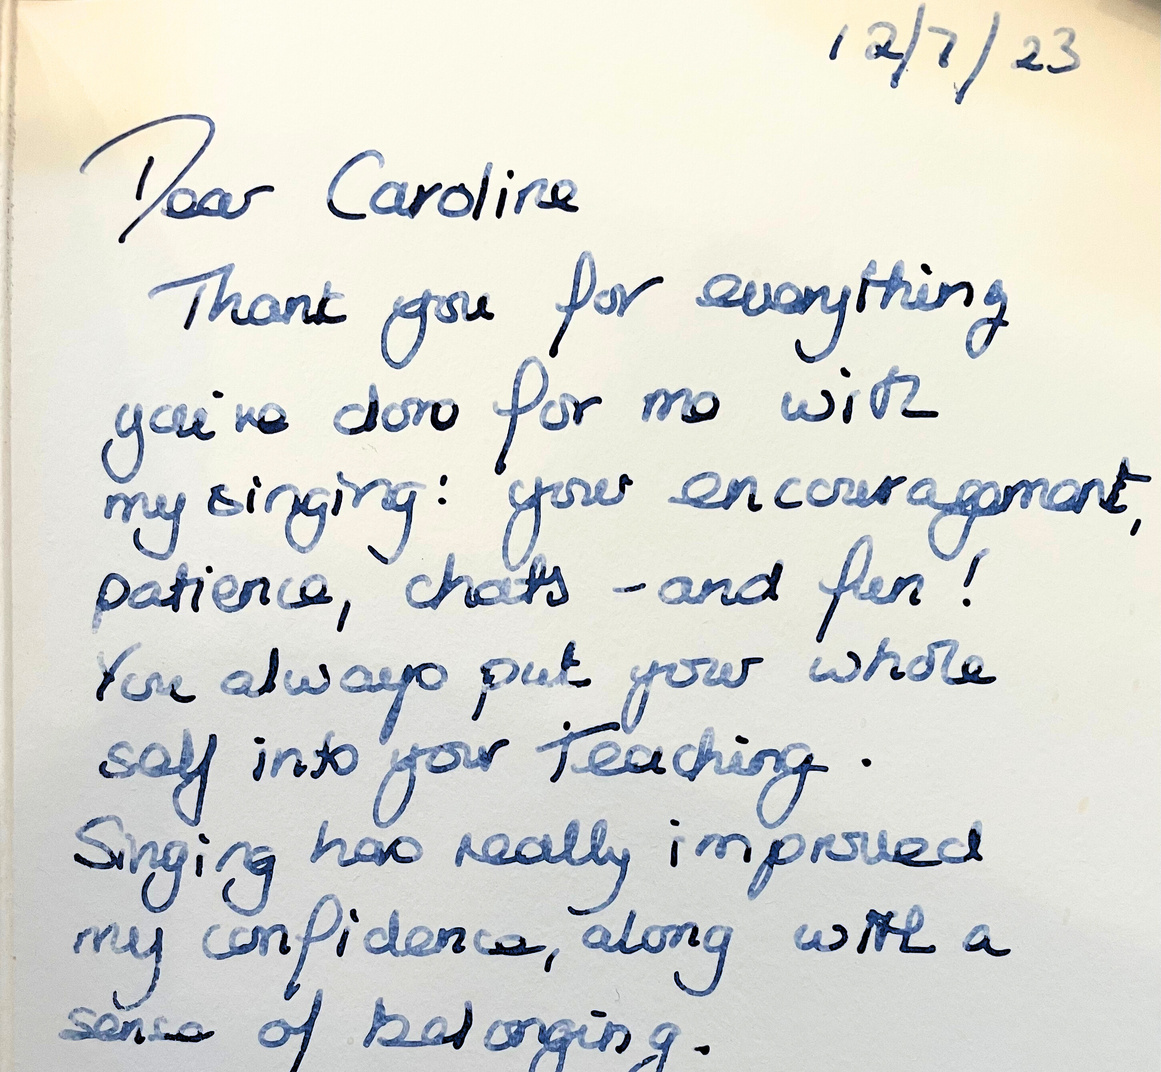 12/7/23
Dear Caroline
Thank you for everything
you've done for me with
my singing: your encouragement,
patience, chats - and fun!
You always put your whole
self into your teaching.
Singing has really improved
my confidence, along with a
sense of belonging.